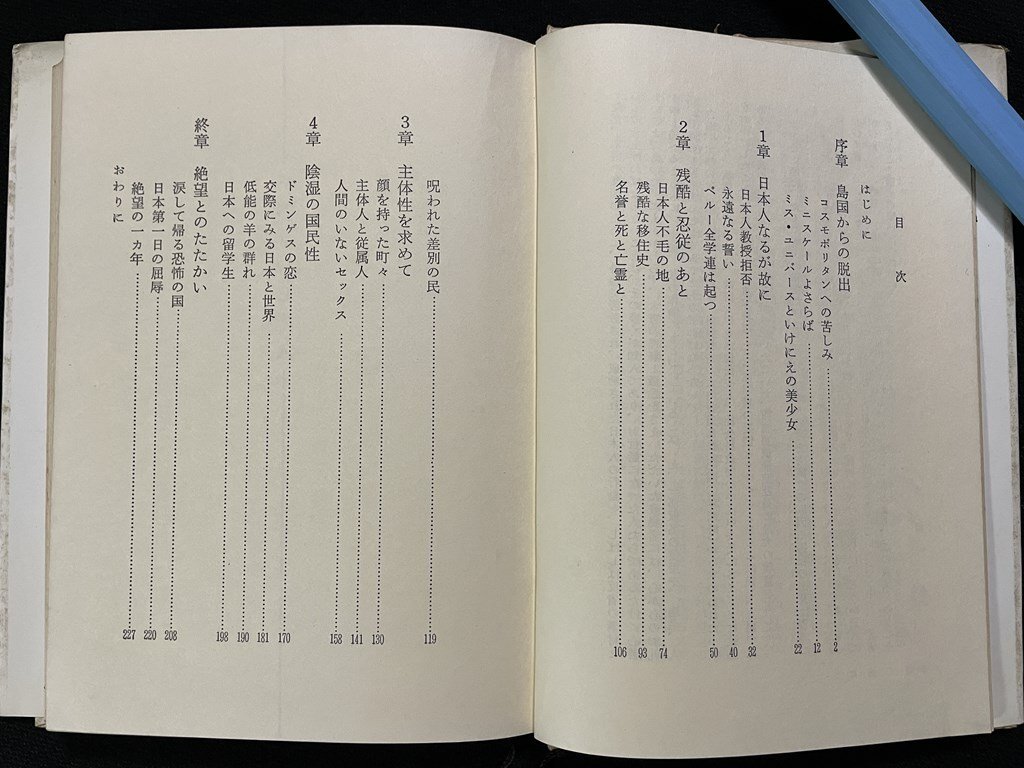 目次
はじめに
序章 島国からの脱出
コスモポリタンへの苦しみ 2
ミニスケールよさらば 12
ミス・ユニバースといけにえの美少女 22
1章 日本人なるが故に
日本人教授拒否 32
永遠なる誓い 40
ペルー全学連は起つ 50
2章 残酷と忍従のあと
日本人不毛の地 74
残酷な移住史 93
名誉と死と亡霊と 106
呪われた差別の民 119
3章 主体性を求めて
顔を持った町々 130
主体人と従属人 141
人間のいないセックス 158
4章 陰湿の国民性
ドミンゲスの恋 170
交際にみる日本と世界 181
低能の羊の群れ 190
日本への留学生 198
終章 絶望とのたたかい
涙して帰る恐怖の国 208
日本第一日の屈辱 220
絶望の一カ年 227
おわりに